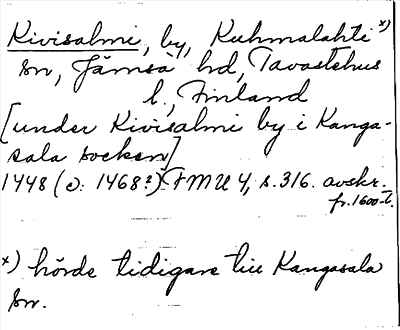 Kivisalmi, by, Kuhmalahti x)
sn, Jämsä hd, Tavastehus
l., Finland
[under Kivisalmi by i Kanga-
sala socken]
1448 (o. 1468?) FMU 4, s.316. avskr.
fr. 1600-t.
x) hörde tidigare till Kangasala
sn.